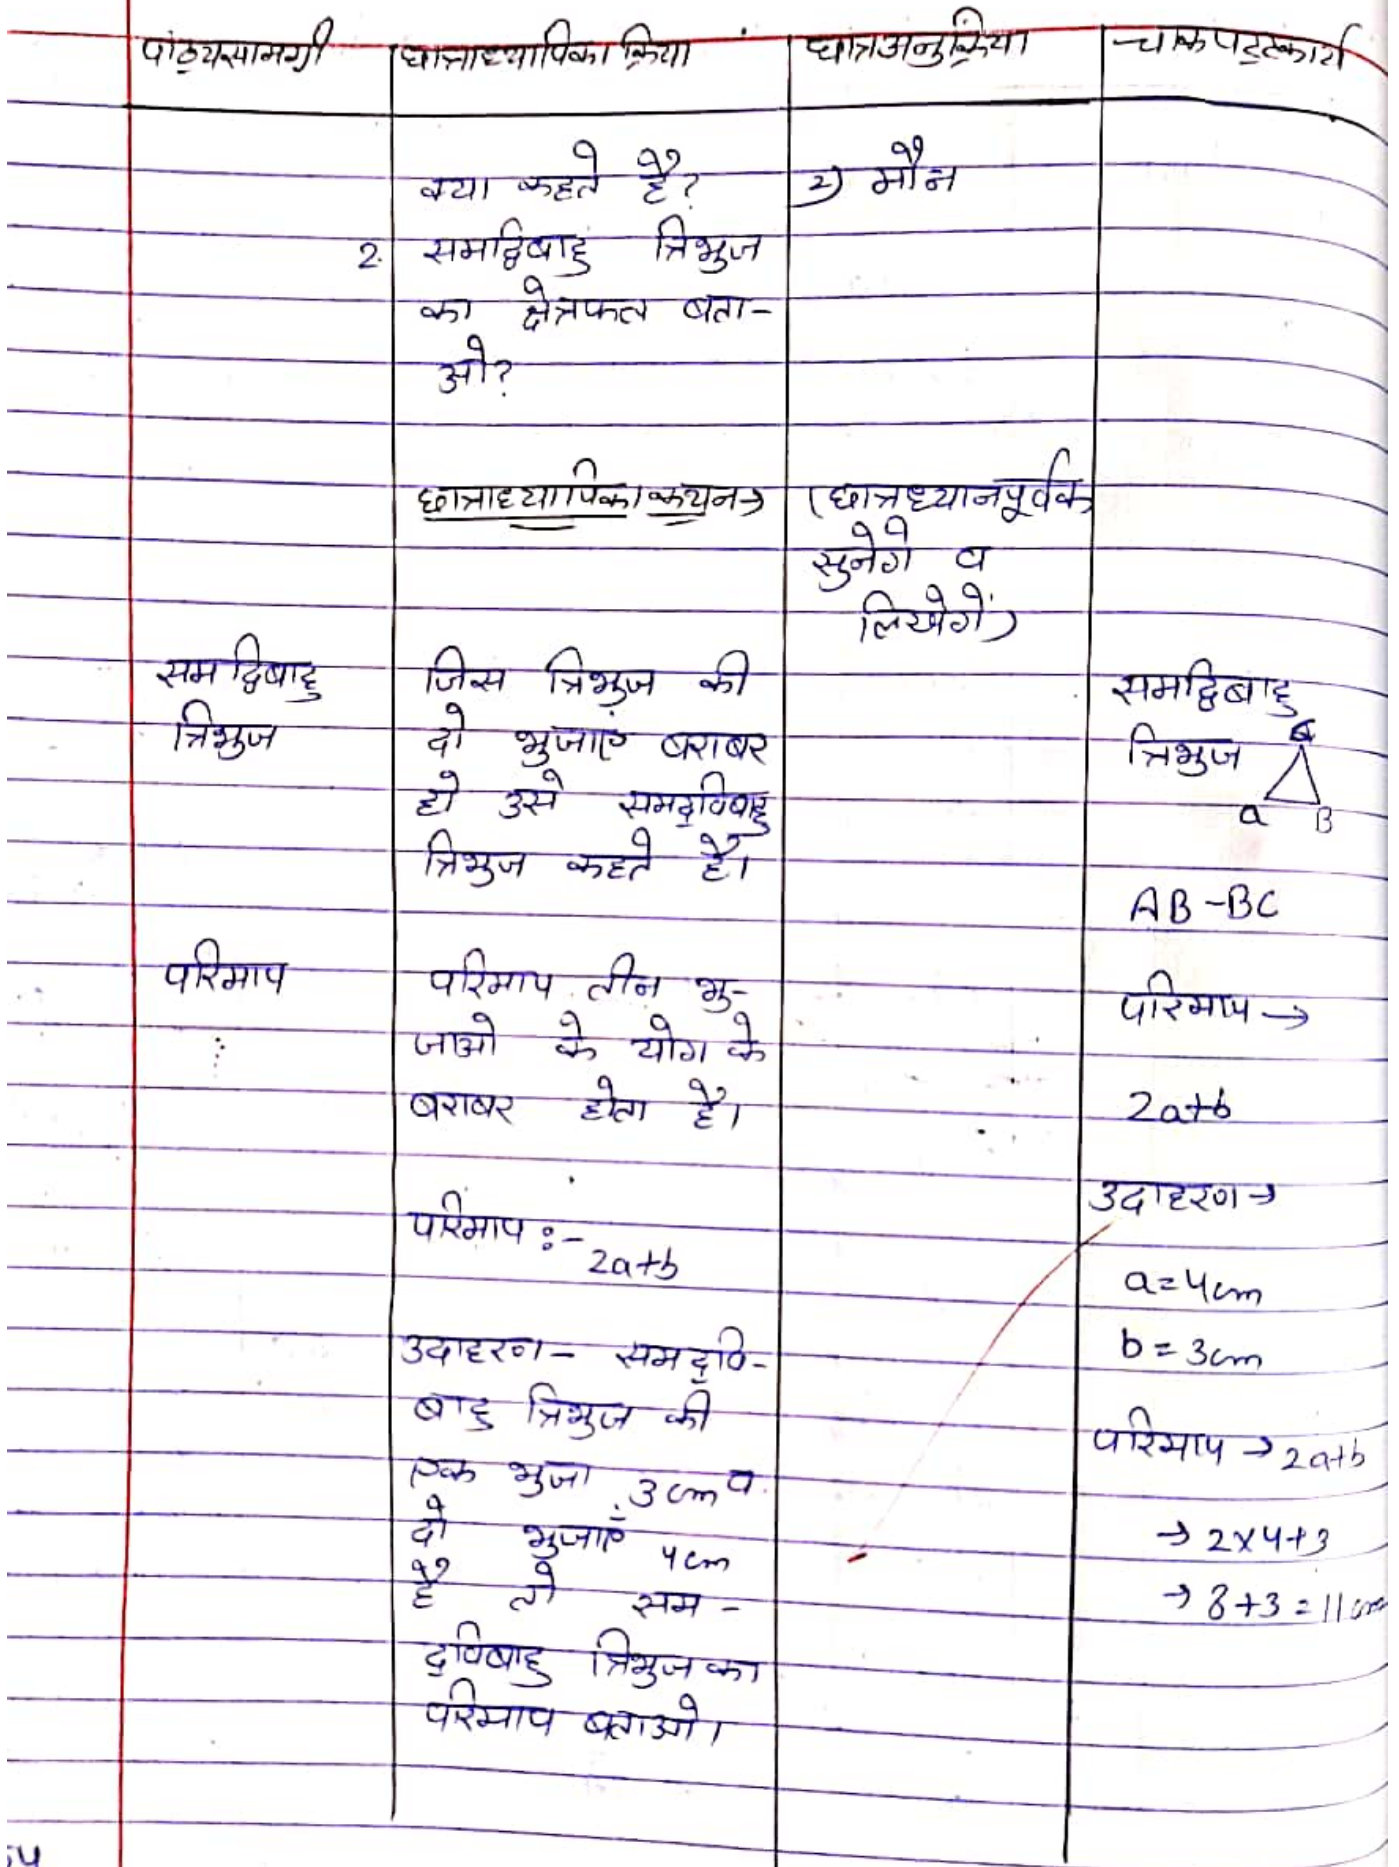 पाठ्यसामग्री छात्राध्यापिका क्रिया छात्रअनुक्रिया चाकपट्टकार्य
क्या कहते है? 2) मौन
2. समद्विबाहु त्रिभुज
का क्षेत्रफल बता-
ओ?
छात्राध्यापिका कथन→ (छात्रध्यानपूर्वक
सुनेगे व
लिखेगें)
समद्विबाहु
त्रिभुज
जिस त्रिभुज की
दो भुजाएं बराबर
हो उसे समद्विबाहु
त्रिभुज कहते है।
समद्विबाहु
त्रिभुज
a B
AB-BC
परिमाप
परिमाप तीन भु-
जाओ के योग के
बराबर होता है।
परिमाप :-
2a+b
उदाहरण- समद्वि-
बाहु त्रिभुज की
एक भुजा 3cm व
दो भुजाएं 4cm
है तो सम-
द्विबाहु त्रिभुज का
परिमाप बताओ।
परिमाप →
2a+b
उदाहरण→
a=4cm
b=3cm
परिमाप → 2a+b
→ 2x4+3
→ 8+3=11cm